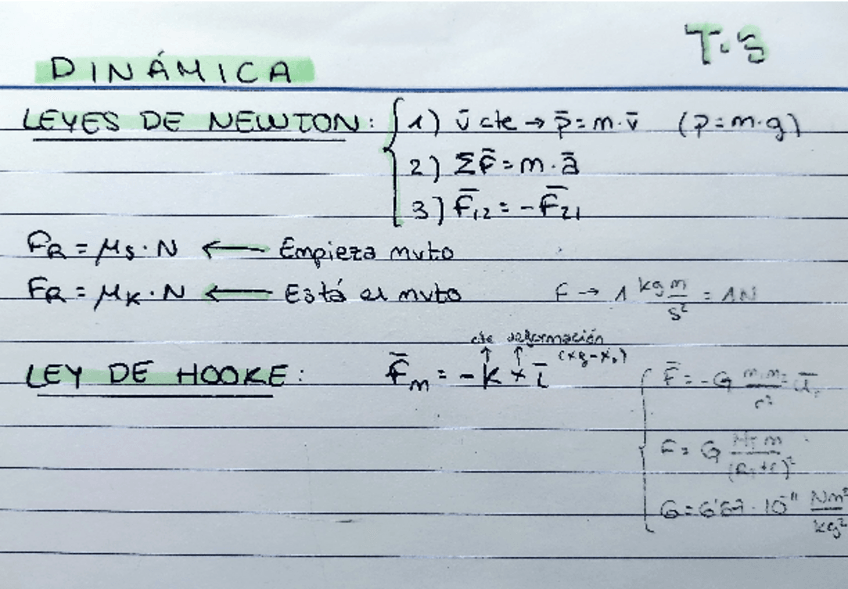 T.5
DINÁMICA
LEYES DE NEWTON: { 1) v̄ cte → p̄ = m·v̄ (p = m·g)
2) ΣF̄ = m·ā
3) F̄₁₂ = -F̄₂₁
FR = μs·N ← Empieza mvto
FR = μk·N ← Está el mvto F → 1 kg m/s² = 1N
cte deformación
(xf-x₀)
LEY DE HOOKE: F̄m = -k x ī
F̄ = -G m₁m₂/r² ūr
F = G MT m/(RT+r)²
G = 6'67·10⁻¹¹ Nm²/kg²